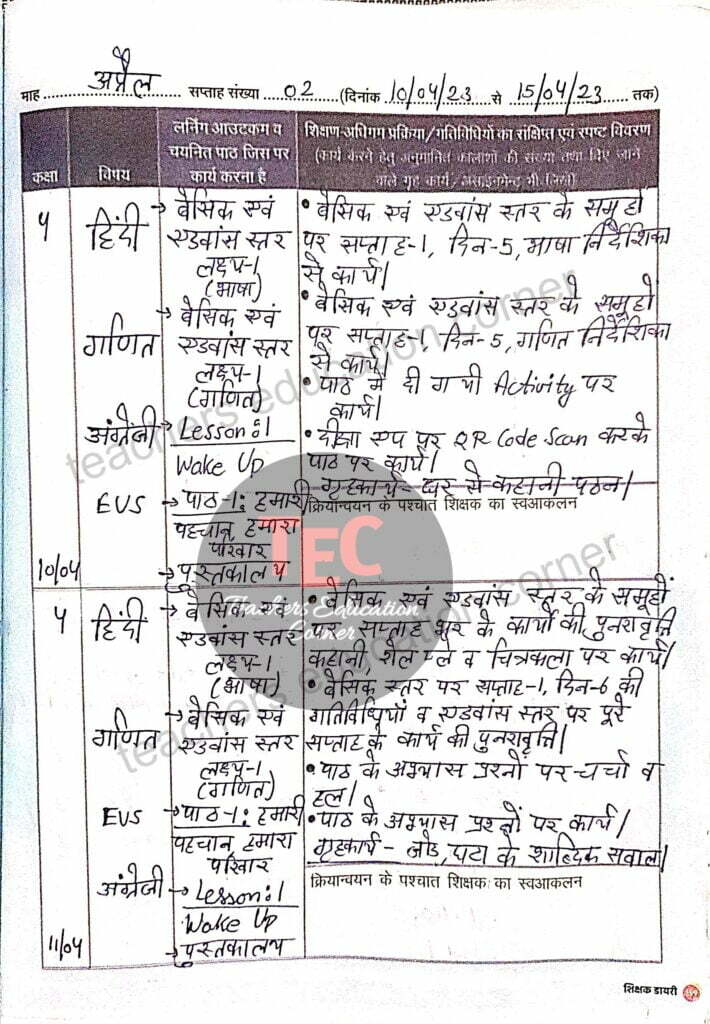 माह अप्रैल सप्ताह संख्या 02 (दिनांक 10/04/23 से 15/04/23 तक)
कक्षा
विषय
लर्निंग आउटकम व
चयनित पाठ जिस पर
कार्य करना है
शिक्षण-अधिगम प्रक्रिया/गतिविधियों का संक्षिप्त एवं स्पष्ट विवरण
(कार्य करने हेतु अनुमानित कालांशों की संख्या तथा दिए जाने
वाले गृह कार्य, असाइनमेन्ट भी लिखें)
५
हिंदी
→ बेसिक एवं
एडवांस स्तर
लक्ष्य-1
(भाषा)
• बेसिक एवं एडवांस स्तर के समूहों
पर सप्ताह-1, दिन-5, भाषा निर्देशिका
से कार्य।
गणित
→ बेसिक एवं
एडवांस स्तर
लक्ष्य-1
(गणित)
• बेसिक एवं एडवांस स्तर के समूहो
पर सप्ताह-1, दिन-5, गणित निर्देशिका
से कार्य।
• पाठ में दी गयी Activity पर
कार्य।
अंग्रेजी
→ Lesson:1
Wake Up
• दीक्षा एप पर QR Code Scan करके
पाठ पर कार्य।
गृहकार्य- घर से कहानी पठन।
EVS
→ पाठ-1: हमारी
पहचान, हमारा
परिवार
→ पुस्तकालय
क्रियान्वयन के पश्चात शिक्षक का स्वआकलन
10/04
५
हिंदी
→ बेसिक एवं
एडवांस स्तर
लक्ष्य-1
(भाषा)
• बेसिक एवं एडवांस स्तर के समूहों
पर सप्ताह भर के कार्यो की पुनरावृत्ति
कहानी, रोल प्ले व चित्रकला पर कार्य।
गणित
→ बेसिक एवं
एडवांस स्तर
लक्ष्य-1
(गणित)
• बेसिक स्तर पर सप्ताह-1, दिन-6 की
गतिविधियों व एडवांस स्तर पर पूरे
सप्ताह के कार्य की पुनरावृत्ति।
• पाठ के अभ्यास प्रश्नों पर चर्चा व
हल।
EVS
→ पाठ-1: हमारी
पहचान हमारा
परिवार
• पाठ के अभ्यास प्रश्नों पर कार्य।
गृहकार्य- जोड़, घटा के शाब्दिक सवाल।
अंग्रेजी
→ Lesson:1
Wake Up
→ पुस्तकालय
क्रियान्वयन के पश्चात शिक्षक का स्वआकलन
11/04
शिक्षक डायरी
teachers education corner
TEC
Teachers Education
Corner
teachers education corner